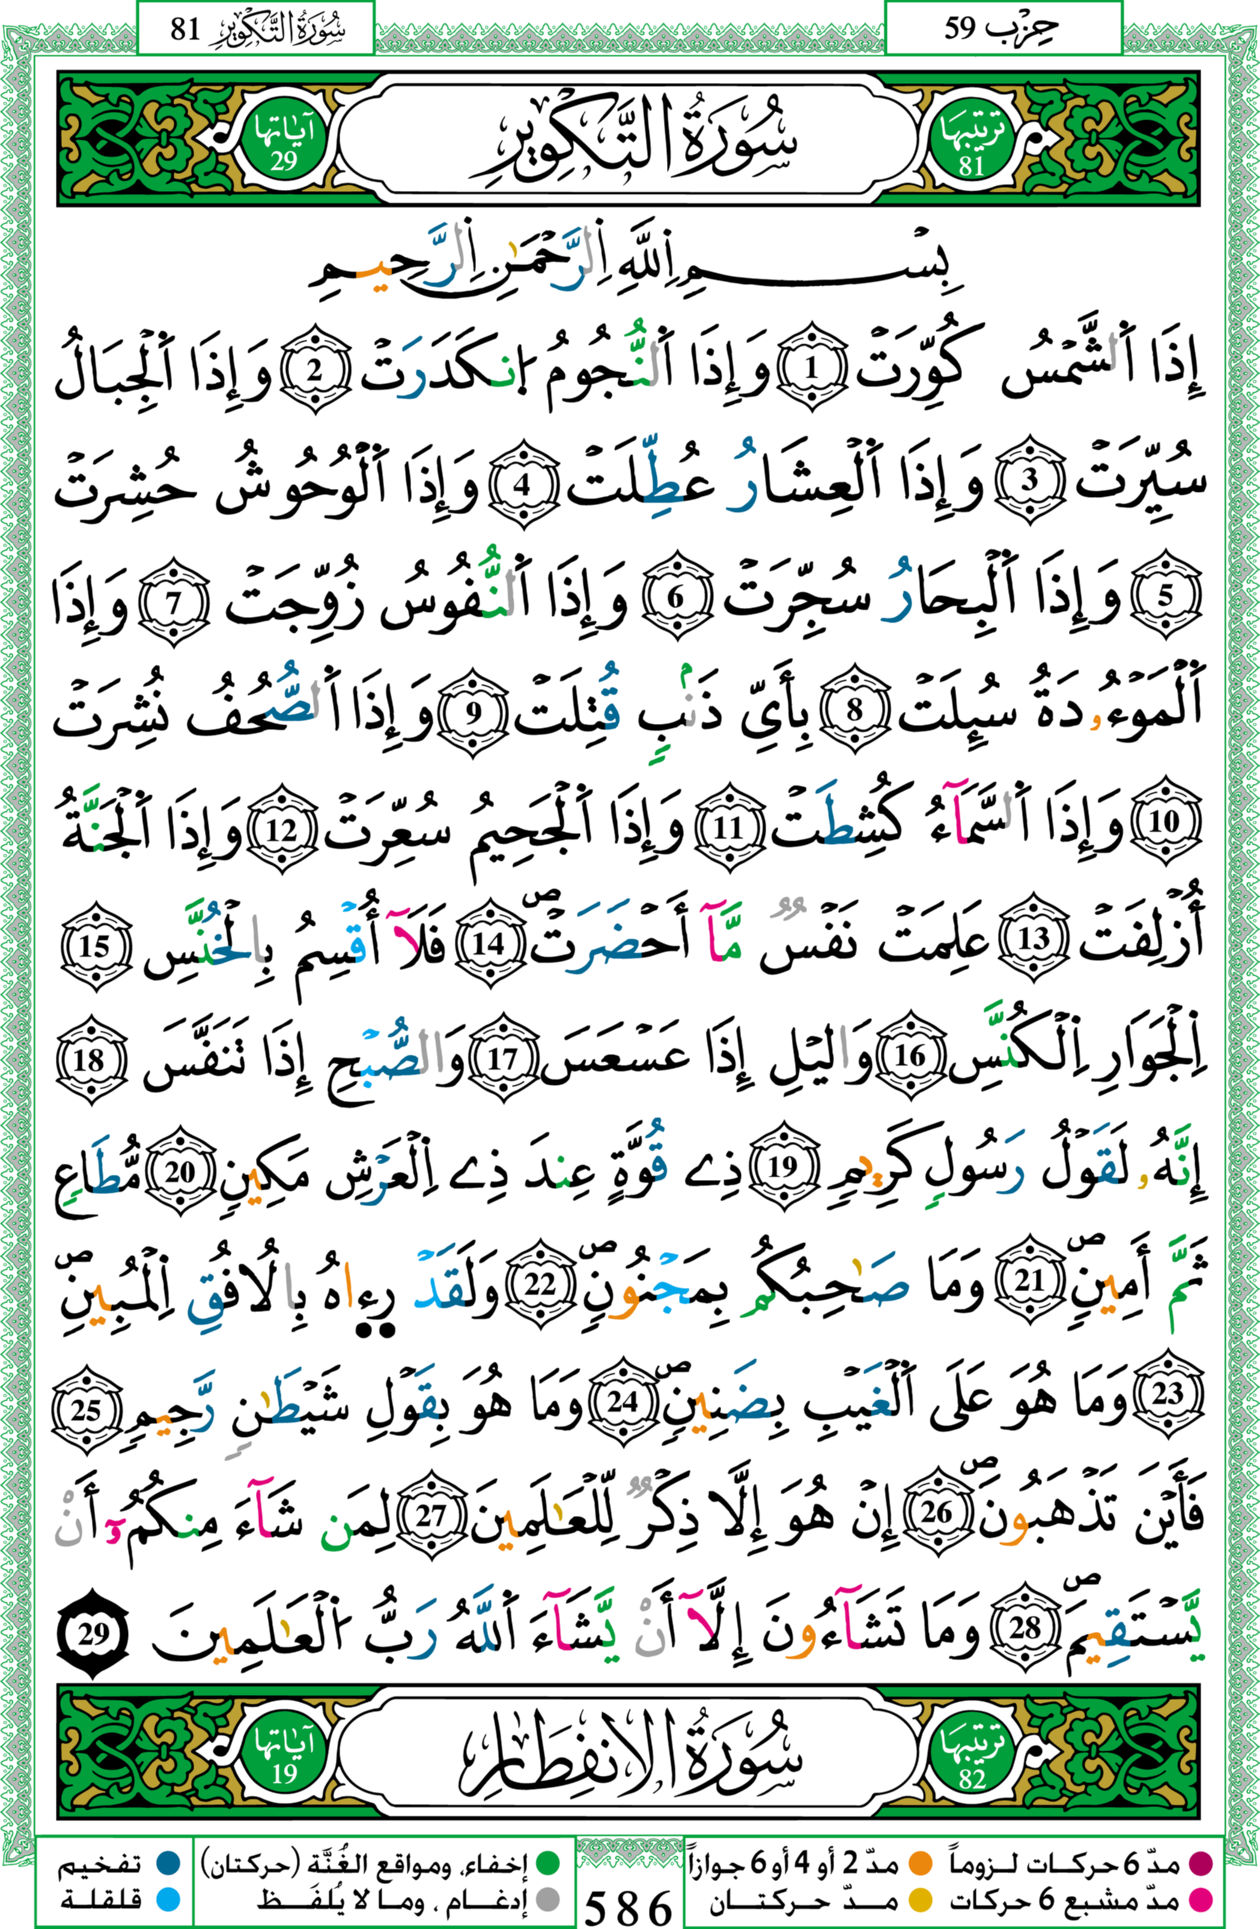 حِزْب 59
سُورَةُ التَّكْوِيرِ 81
ترتيبها 81 سُورَةُ التَّكْوِيرِ آياتها 29
بِسْمِ اِللَّهِ اِلرَّحْمَٰنِ اِلرَّحِيمِ
إِذَا اَ۬لشَّمْسُ كُوِّرَتْ 1 وَإِذَا اَ۬لنُّجُومُ اُ۪نكَدَرَتْ 2 وَإِذَا اَ۬لْجِبَالُ
سُيِّرَتْ 3 وَإِذَا اَ۬لْعِشَارُ عُطِّلَتْ 4 وَإِذَا اَ۬لْوُحُوشُ حُشِرَتْ
5 وَإِذَا اَ۬لْبِحَارُ سُجِّرَتْ 6 وَإِذَا اَ۬لنُّفُوسُ زُوِّجَتْ 7 وَإِذَا
اَ۬لْمَوْءُۥدَةُ سُئِلَتْ 8 بِأَيِّ ذَنۢبٍ قُتِلَتْ 9 وَإِذَا اَ۬لصُّحُفُ نُشِرَتْ
10 وَإِذَا اَ۬لسَّمَآءُ كُشِطَتْ 11 وَإِذَا اَ۬لْجَحِيمُ سُعِّرَتْ 12 وَإِذَا اَ۬لْجَنَّةُ
أُزْلِفَتْ 13 عَلِمَتْ نَفْسٌ مَّآ أَحْضَرَتْۖ 14 فَلَآ أُقْسِمُ بِالْخُنَّسِ 15
اِ۬لْجَوَارِ اِ۬لْكُنَّسِ 16 وَاليْلِ إِذَا عَسْعَسَ 17 وَالصُّبْحِ إِذَا تَنَفَّسَ 18
إِنَّهُۥ لَقَوْلُ رَسُولٖ كَرِيمٖ 19 ذِے قُوَّةٍ عِندَ ذِے اِ۬لْعَرْشِ مَكِينٖ 20 مُّطَاعٖ
ثَمَّ أَمِينٖۖ 21 وَمَا صَٰحِبُكُم بِمَجْنُونٖۖ 22 وَلَقَدْ ر۪ء۪اهُ بِالُافُقِ اِ۬لْمُبِينِۖ
23 وَمَا هُوَ عَلَى اَ۬لْغَيْبِ بِضَنِينٖۖ 24 وَمَا هُوَ بِقَوْلِ شَيْطَٰنٖ رَّجِيمٖ 25
فَأَيْنَ تَذْهَبُونَۖ 26 إِنْ هُوَ إِلَّا ذِكْرٌ لِّلْعَٰلَمِينَ 27 لِمَن شَآءَ مِنكُمُۥٓ أَنْ
يَّسْتَقِيمَۖ 28 وَمَا تَشَآءُونَ إِلَّآ أَنْ يَّشَآءَ اَ۬للَّهُ رَبُّ اُ۬لْعَٰلَمِينَ 29
ترتيبها 82 سُورَةُ الِانفِطَارِ آياتها 19
مدّ 6 حركات لـزوماً مدّ 2 أو 4 أو 6 جوازاً
مدّ مشبع 6 حركات مــدّ حـركتــان
586
إخفاء، ومواقع الغُنَّة (حركتان) تفخيم
إدغـام ، ومـا لا يُلفَـظ قلقلة